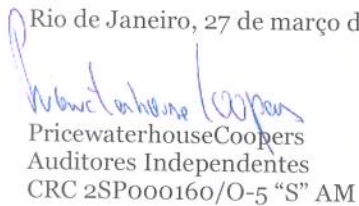 Rio de Janeiro, 27 de março d
PricewaterhouseCoopers
PricewaterhouseCoopers
Auditores Independentes
CRC 2SP000160/O-5 “S” AM